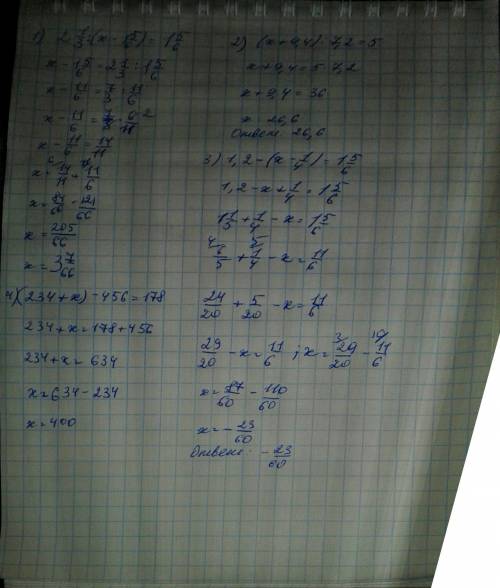 1) 2 1/3 : (x - 1 5/6) = 1 5/6
x - 1 5/6 = 2 1/3 : 1 5/6
x - 11/6 = 7/3 : 11/6
x - 11/6 = 7/3 · 6/11 2
x - 11/6 = 14/11
x = 14/11 + 11/6
x = 84/66 + 121/66
x = 205/66
x = 3 7/66
2) (x + 9,4) : 7,2 = 5
x + 9,4 = 5 · 7,2
x + 9,4 = 36
x = 26,6
Ответ: 26,6
3) 1,2 - (x - 1/4) = 1 5/6
1,2 - x + 1/4 = 1 5/6
1 1/5 + 1/4 - x = 1 5/6
4 5
6/5 + 1/4 - x = 11/6
24/20 + 5/20 - x = 11/6
29/20 - x = 11/6 ; x = 3 29/20 - 10 11/6
x = 87/60 - 110/60
x = - 23/60
Ответ: - 23/60
4) (234 + x) - 456 = 178
234 + x = 178 + 456
234 + x = 634
x = 634 - 234
x = 400